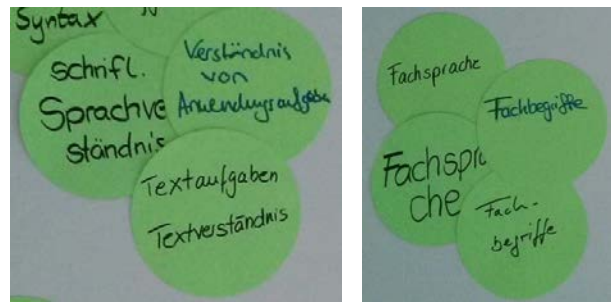 Syntax
schriftl.
Sprachve
ständnis
Verständnis
von
Anwendungsaufgabe
Textaufgaben
Textverständnis
Fachsprache
Fachbegriffe
Fachspra
che
Fach-
begriffe